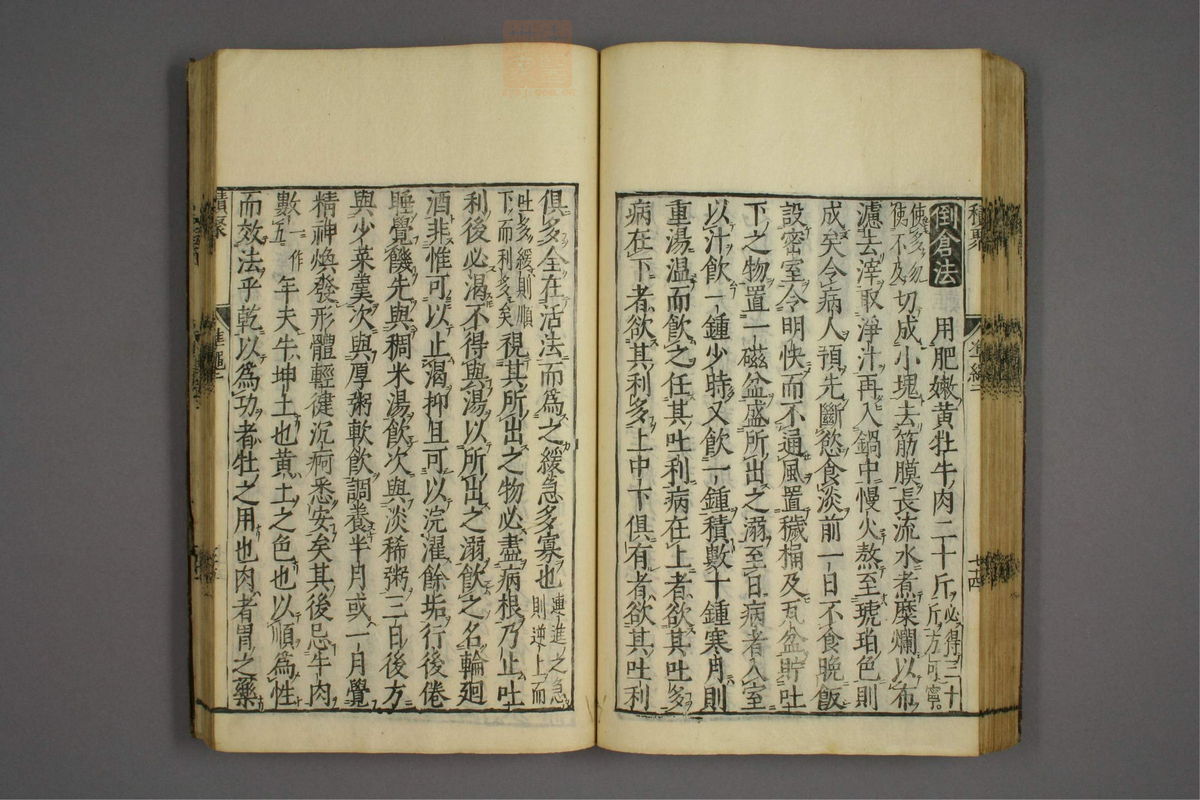 倒倉法
用肥嫩黃牡牛肉二十斤必得三十斤方可寧
使多勿使不及切成小塊去筋膜長流水煮糜爛以布
濾去滓取淨汁再入鍋中慢火熬至琥珀色則
成矣令病人預先斷慾食淡前一日不食晚飯
設密室令明快而不通風置穢桶及瓦盆貯吐
下之物置一磁盆盛所出之溺至日病者入室
以汁飲一鍾少時又飲一鍾積數十鍾寒月則
重湯溫而飲之任其吐利病在上者欲其吐多
病在下者欲其利多上中下俱有者欲其吐利
俱多全在活法而為之緩急多寡也連進之急則逆上而
吐多緩則順下而利多矣視其所出之物必盡病根乃止吐
利後必渴不得與湯以所出之溺飲之名輪廻
酒非惟可以止渴抑且可以浣濯餘垢行後倦
睡覺饑先與稠米湯飲次與淡稀粥三日後方
與少菜羹次與厚粥軟飲調養半月或一月覺
精神煥發形體輕健沉疴悉安矣其後忌牛肉
數一作五年夫牛坤土也黃土之色也以順為性
而效法乎乾以為功者牡之用也肉者胃之藥
積聚